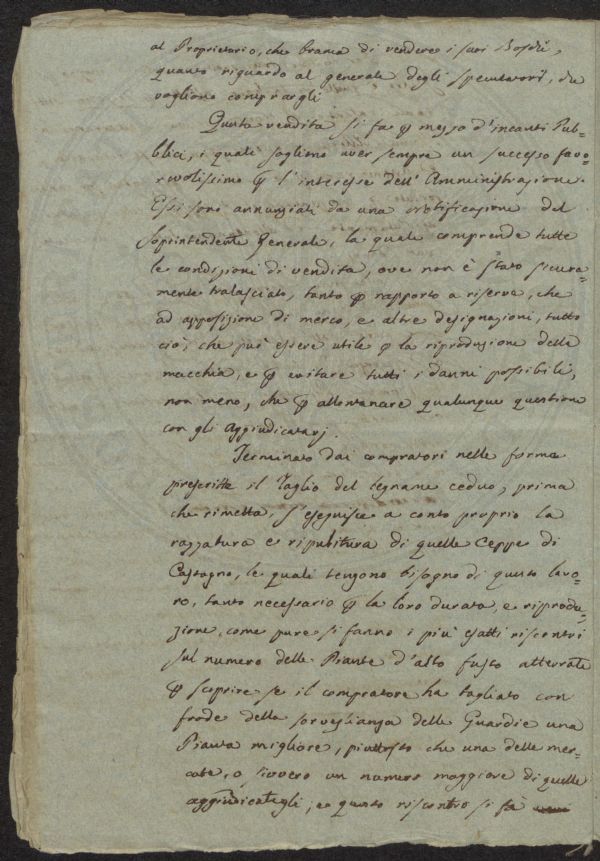 al Proprietario, che brama di vendere i suoi Boschi,
quanto riguardo al generale degli speculatori, che
vogliono comprargli.
Questa vendita si fa ꝑ mezzo d'incanti Pub=
blici, i quali sogliono aver sempre un successo favo=
revolissimo ꝑ l'interesse dell'Amministrazione.
Essi sono annunziati da una Notificazione del
Soprintendente Generale, la quale comprende tutte
le condizioni di vendita, ove non è stato sicura=
mente tralasciato, tanto ꝑ rapporto a riserve, che
ad apposizione di merco, e altre designazioni, tutto
ciò, che può essere utile ꝑ la riproduzione delle
macchia, e ꝑ evitare tutti i danni possibili,
non meno, che ꝑ allontanare qualunque questione
con gli Aggiudicatarj.
Terminato dai compratori nelle forme
prescritte il Taglio del legname ceduo, prima
che rimetta, s'eseguisce a conto proprio la
razzatura e ripulitura di quelle Ceppe di
Castagno, le quali tengono bisogno di questo lavo=
ro, tanto necessario ꝑ la loro durata, e riprodu=
zione, come pure si fanno i più esatti riscontri
sul numero delle Piante d'alto fusto atterrate
ꝑ scoprire se il compratore ha tagliato con
frode della sorveglianza delle Guardie una
Pianta migliore, piuttosto che una delle mer=
cate, o sivvero un numero maggiore di quelle
aggiudicategli; e questo riscontro si fà